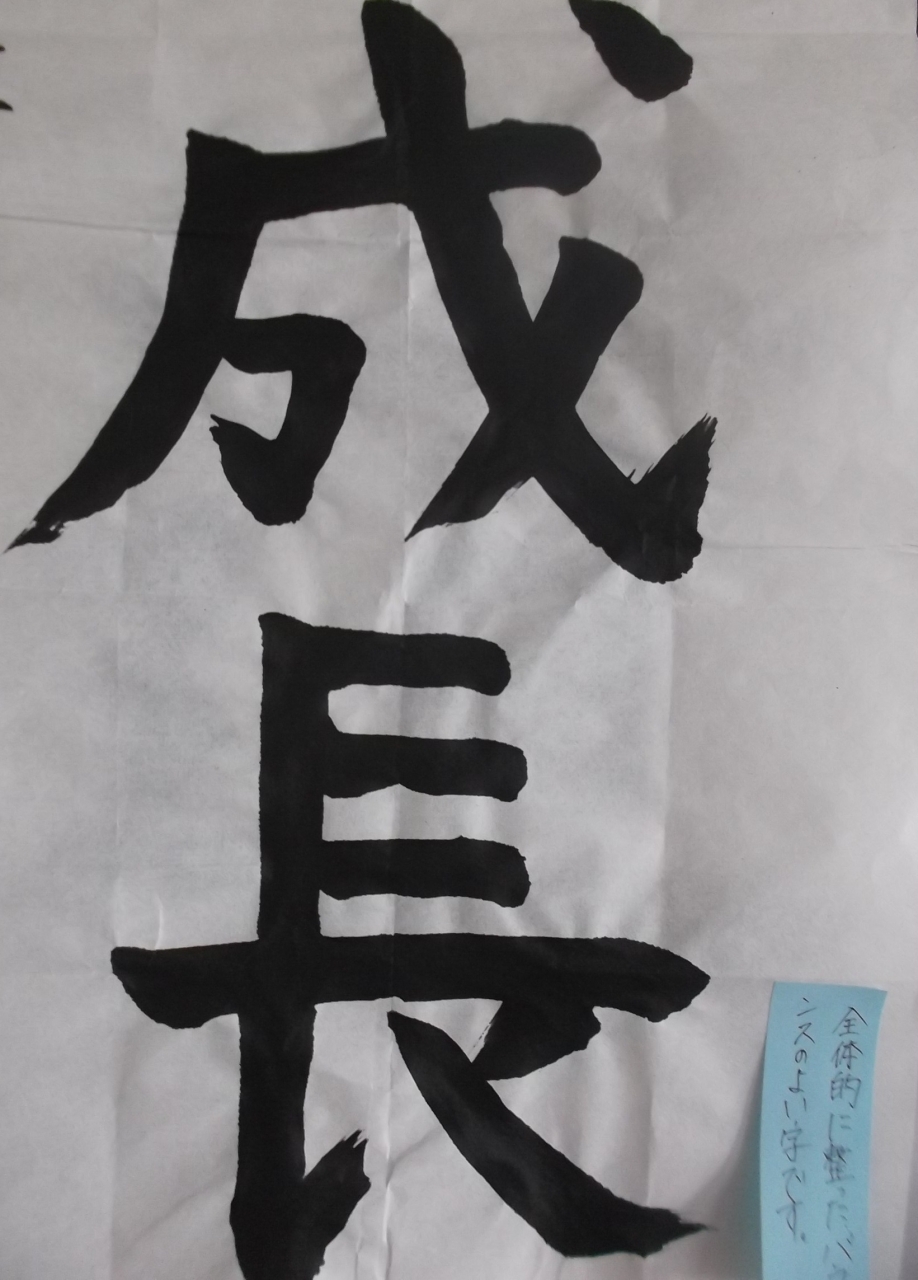 成長
全体的に整ったバラ
ンスのよい字です。